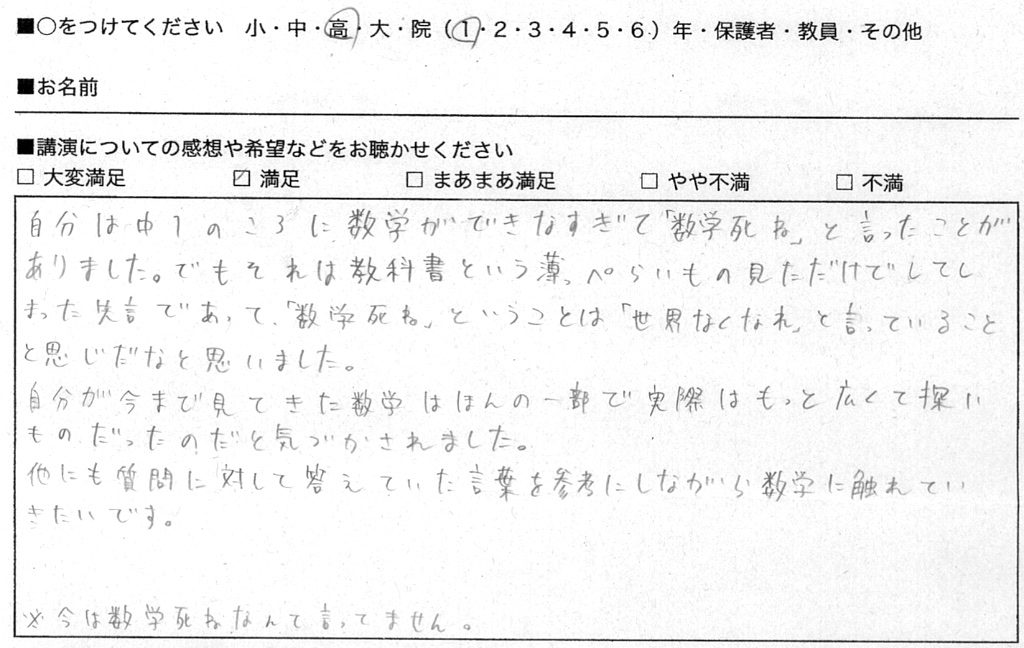 ■○をつけてください 小・中・高・大・院（1・2・3・4・5・6）年・保護者・教員・その他
■お名前
■講演についての感想や希望などをお聴かせください
□ 大変満足 ☑ 満足 □ まあまあ満足 □ やや不満 □ 不満
自分は中1のころに数学ができなすぎて「数学死ね」と言ったことが
ありました。でもそれは教科書という薄っぺらいもの見ただけでしてし
まった失言であって、「数学死ね」ということは「世界なくなれ」と言っていること
と思じだなと思いました。
自分が今まで見てきた数学はほんの一部で実際はもっと広くて探い
ものだったのだと気づかされました。
他にも質問に対して答えていた言葉を参考にしながら数学に触れてい
きたいです。
※今は数学死ねなんて言ってません。